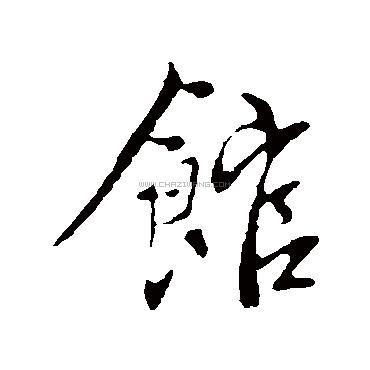 館
WWW.CHAZIWANG.COM